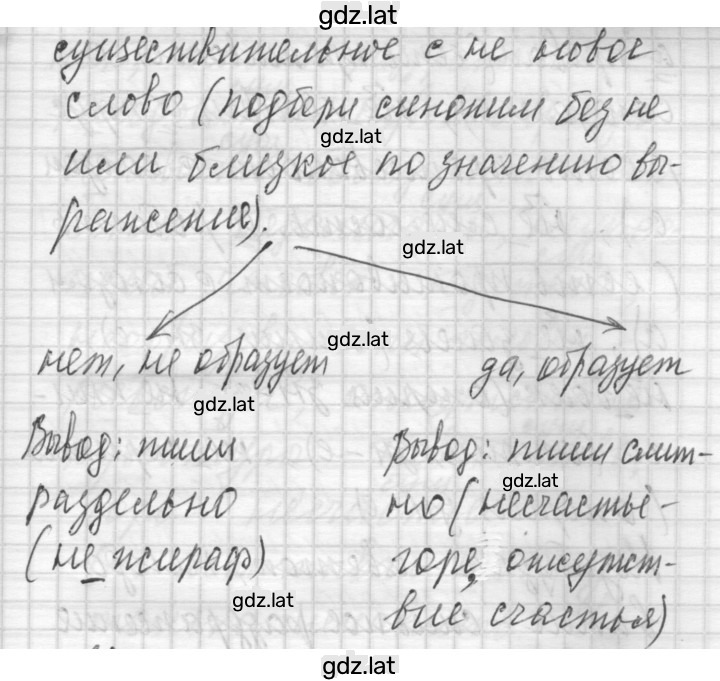 gdz.lat
существительное с не новое
слово (подбери синоним без не
gdz.lat
или близкое по значению вы-
ражение).
gdz.lat
gdz.lat
нет, не образует
да, образует
gdz.lat
Вывод: пиши
раздельно
(не жираф)
gdz.lat
Вывод: пиши слит-
gdz.lat
но (несчастье-
горе, отсутст-
вие счастья)
gdz.lat